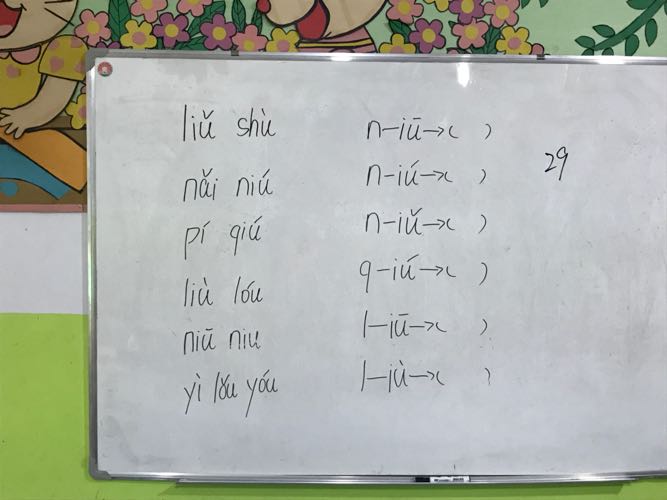 liǔ shù
nǎi niú
pí qiú
liù lóu
niū niu
yì lǒu yóu
n-iū→( )
n-iú→( )
n-iǔ→( )
q-iú→( )
l-iū→( )
l-iù→( )
29